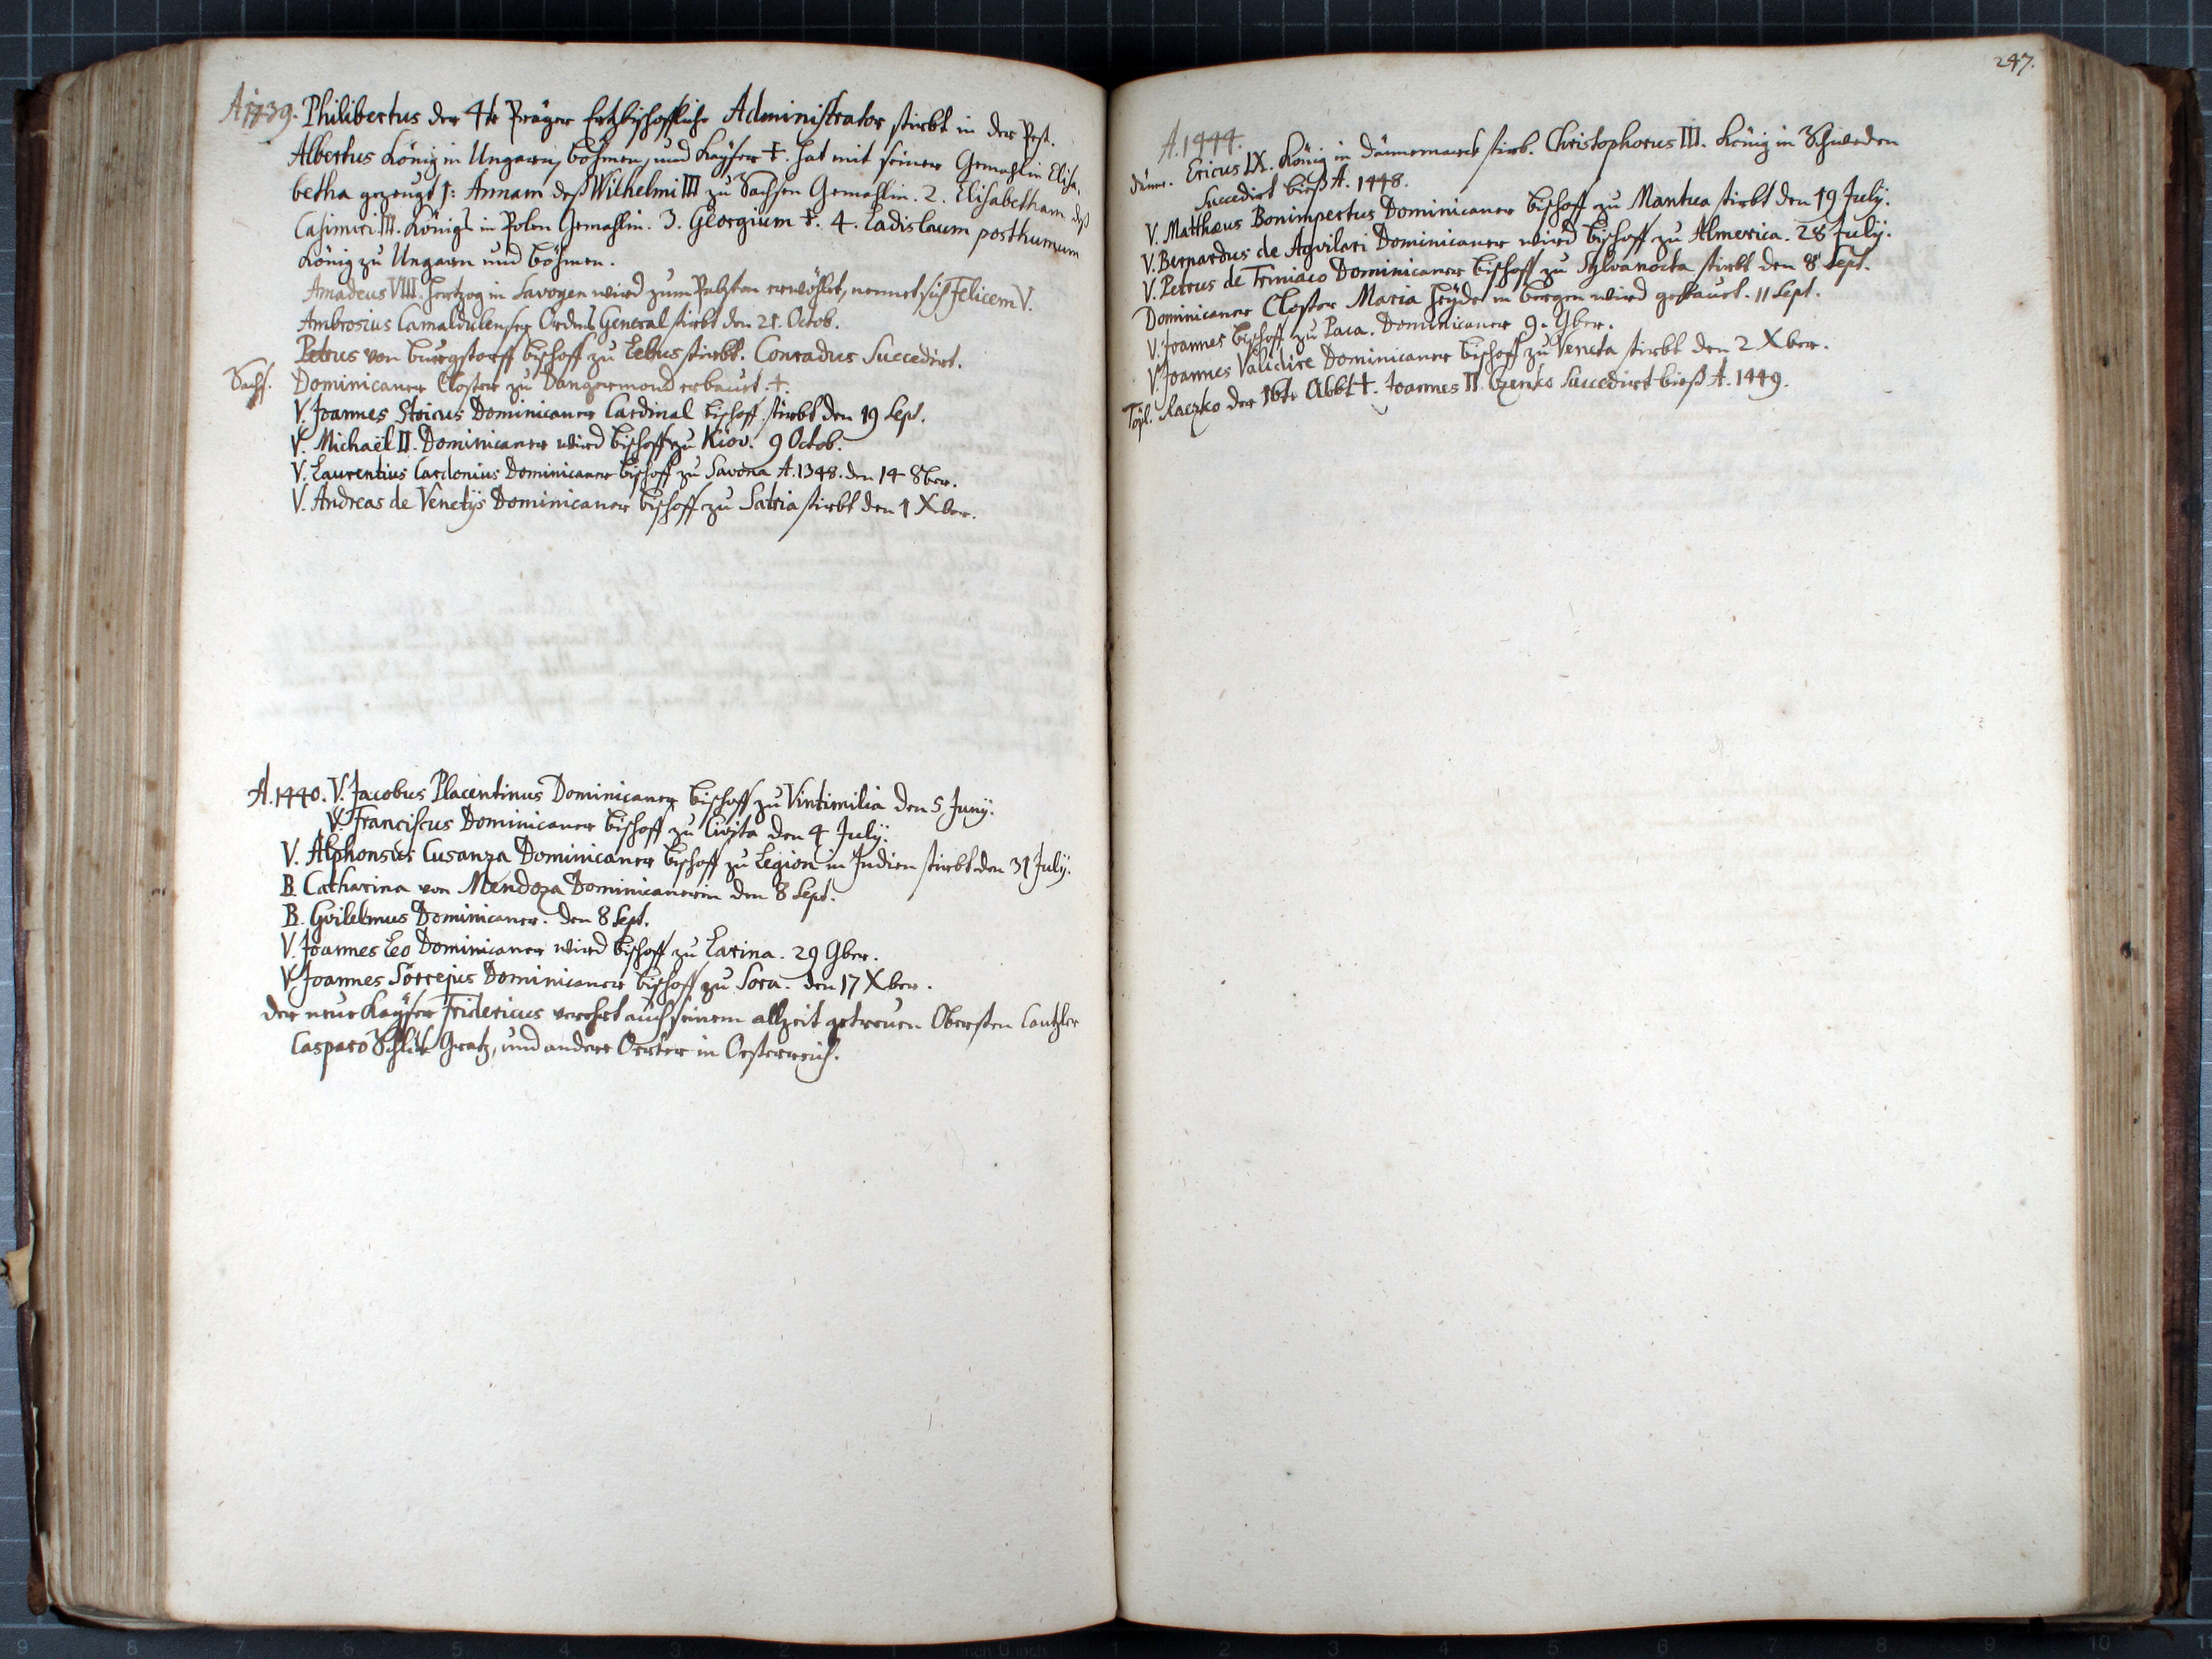 A 1439. Philibertus der 4te Prager Ertzbischoffliche Administrator stirbt in der Pest.
Albertus König in Ungarn, Böhmen, und Kayser †. hat mit seiner Gemahlin Elisa-
betha gezeugt 1: Annam deß Wilhelmi III zu Sachsen Gemahlin. 2. Elisabetham deß
Casimiri III. Königs in Polen Gemahlin. 3. Georgium †. 4. Ladislaum posthumum
König zu Ungarn und Böhmen.
Amadeus VIII. Hertzog in Savoyen wird zum Pabsten erwöhlt, nennet sich Felicem V.
Ambrosius Camaldulenser Ordens General stirbt den 21. Octob.
Petrus von Burgstorff Bischoff zu Lebus stirbt. Conradus Succedirt.
Sachs. Dominicaner Closter zu Dangermond erbaut. †.
V. Joannes Stoicus Dominicaner Cardinal Bischoff stirbt den 19 Sept.
V. Michaël II. Dominicaner wird Bischoff zu Kiov. 9 Octob.
V. Laurentius Cardonius Dominicaner Bischoff zu Savona A. 1348. den 14 8ber.
V. Andreas de Venetijs Dominicaner Bischoff zu Satria stirbt den 1 Xber.
A. 1440. V. Jacobus Placentinus Dominicaner Bischoff zu Vintimilia den 5 Junij.
V. Franciscus Dominicaner Bischoff zu Civita den 4 Julij.
V. Alphonsus Cusanza Dominicaner Bischoff zu Legion in Indien stirbt den 31 Julij.
B. Catharina von Mendoza Dominicanerin den 8 Sept.
B. Gvilelmus Dominicaner. den 8 Sept.
V. Joannes Leo Dominicaner wird Bischoff zu Larina. 29 9ber.
V. Joannes Sorrejus Dominicaner Bischoff zu Sora. den 17 Xber.
der neue Kayser Fridericus verehrt auch seinem allzeit getreuen Obersten Cantzler
Casparo Schlik Gratz, und andere Oerter in Oesterreich.
247.
A. 1444.
Dänn. Ericus IX. König in Dännemarck stirb. Christophorus III. König in Schweden
Succedirt bieß A. 1448.
V. Matthæus Bonimpertus Dominicaner Bischoff zu Mantua stirbt den 19 July.
V. Bernardus de Aqvilari Dominicaner wird Bischoff zu Almerica. 28 Julij.
V. Petrus de Dominicaner Bischoff zu Sylvanocta stirbt den 8 Sept.
Dominicaner Closter Maria Heyde in Bergen wird gebaut. 11 Sept.
V. Joannes Bischoff zu Paca. Dominicaner 9. 9ber.
V. Joannes Validire Dominicaner Bischoff zu Veneta stirbt den 2 Xber.
Töpl. Raczko der 16te Abbt †. Joannes II. Czenko Succedirt bieß A. 1449.